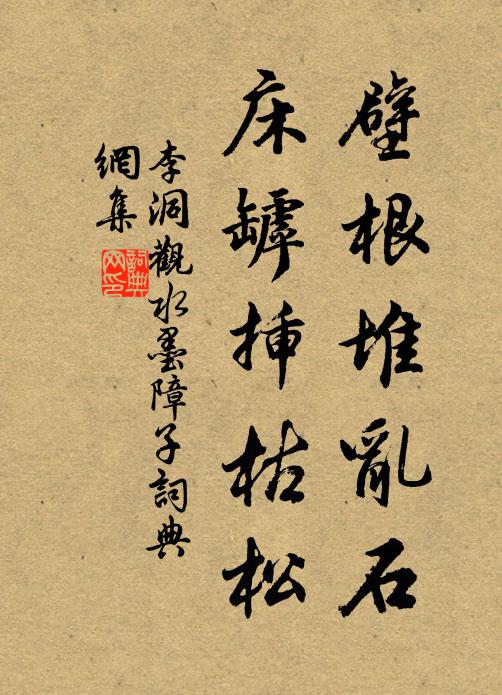 壁根堆亂石
床罅插枯松
李洞觀水墨障子詞典
網集
詞典
网印